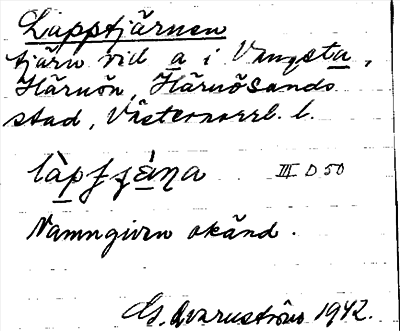 Lapptjärnen
tjärn vid a i Vangsta,
Härnön, Härnösands
stad, Västernorrl. l.
III D 50
Namngiven okänd.
G. Qvarnström 1942.